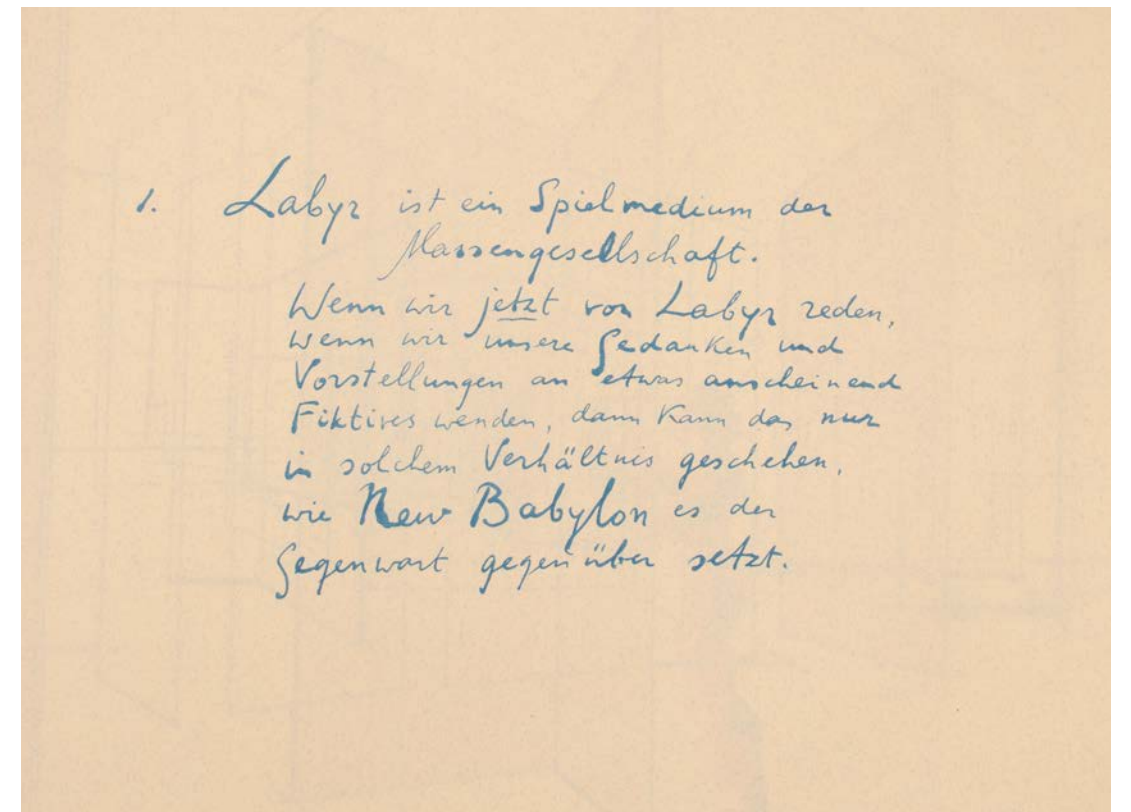 1. Labyr ist ein Spielmedium der
Massengesellschaft.
Wenn wir jetzt von Labyr reden,
wenn wir unsere Gedanken und
Vorstellungen an etwas anscheinend
Fiktives wenden, dann kann das nur
in solchem Verhältnis geschehen,
wie New Babylon es der
Gegenwart gegenüber setzt.